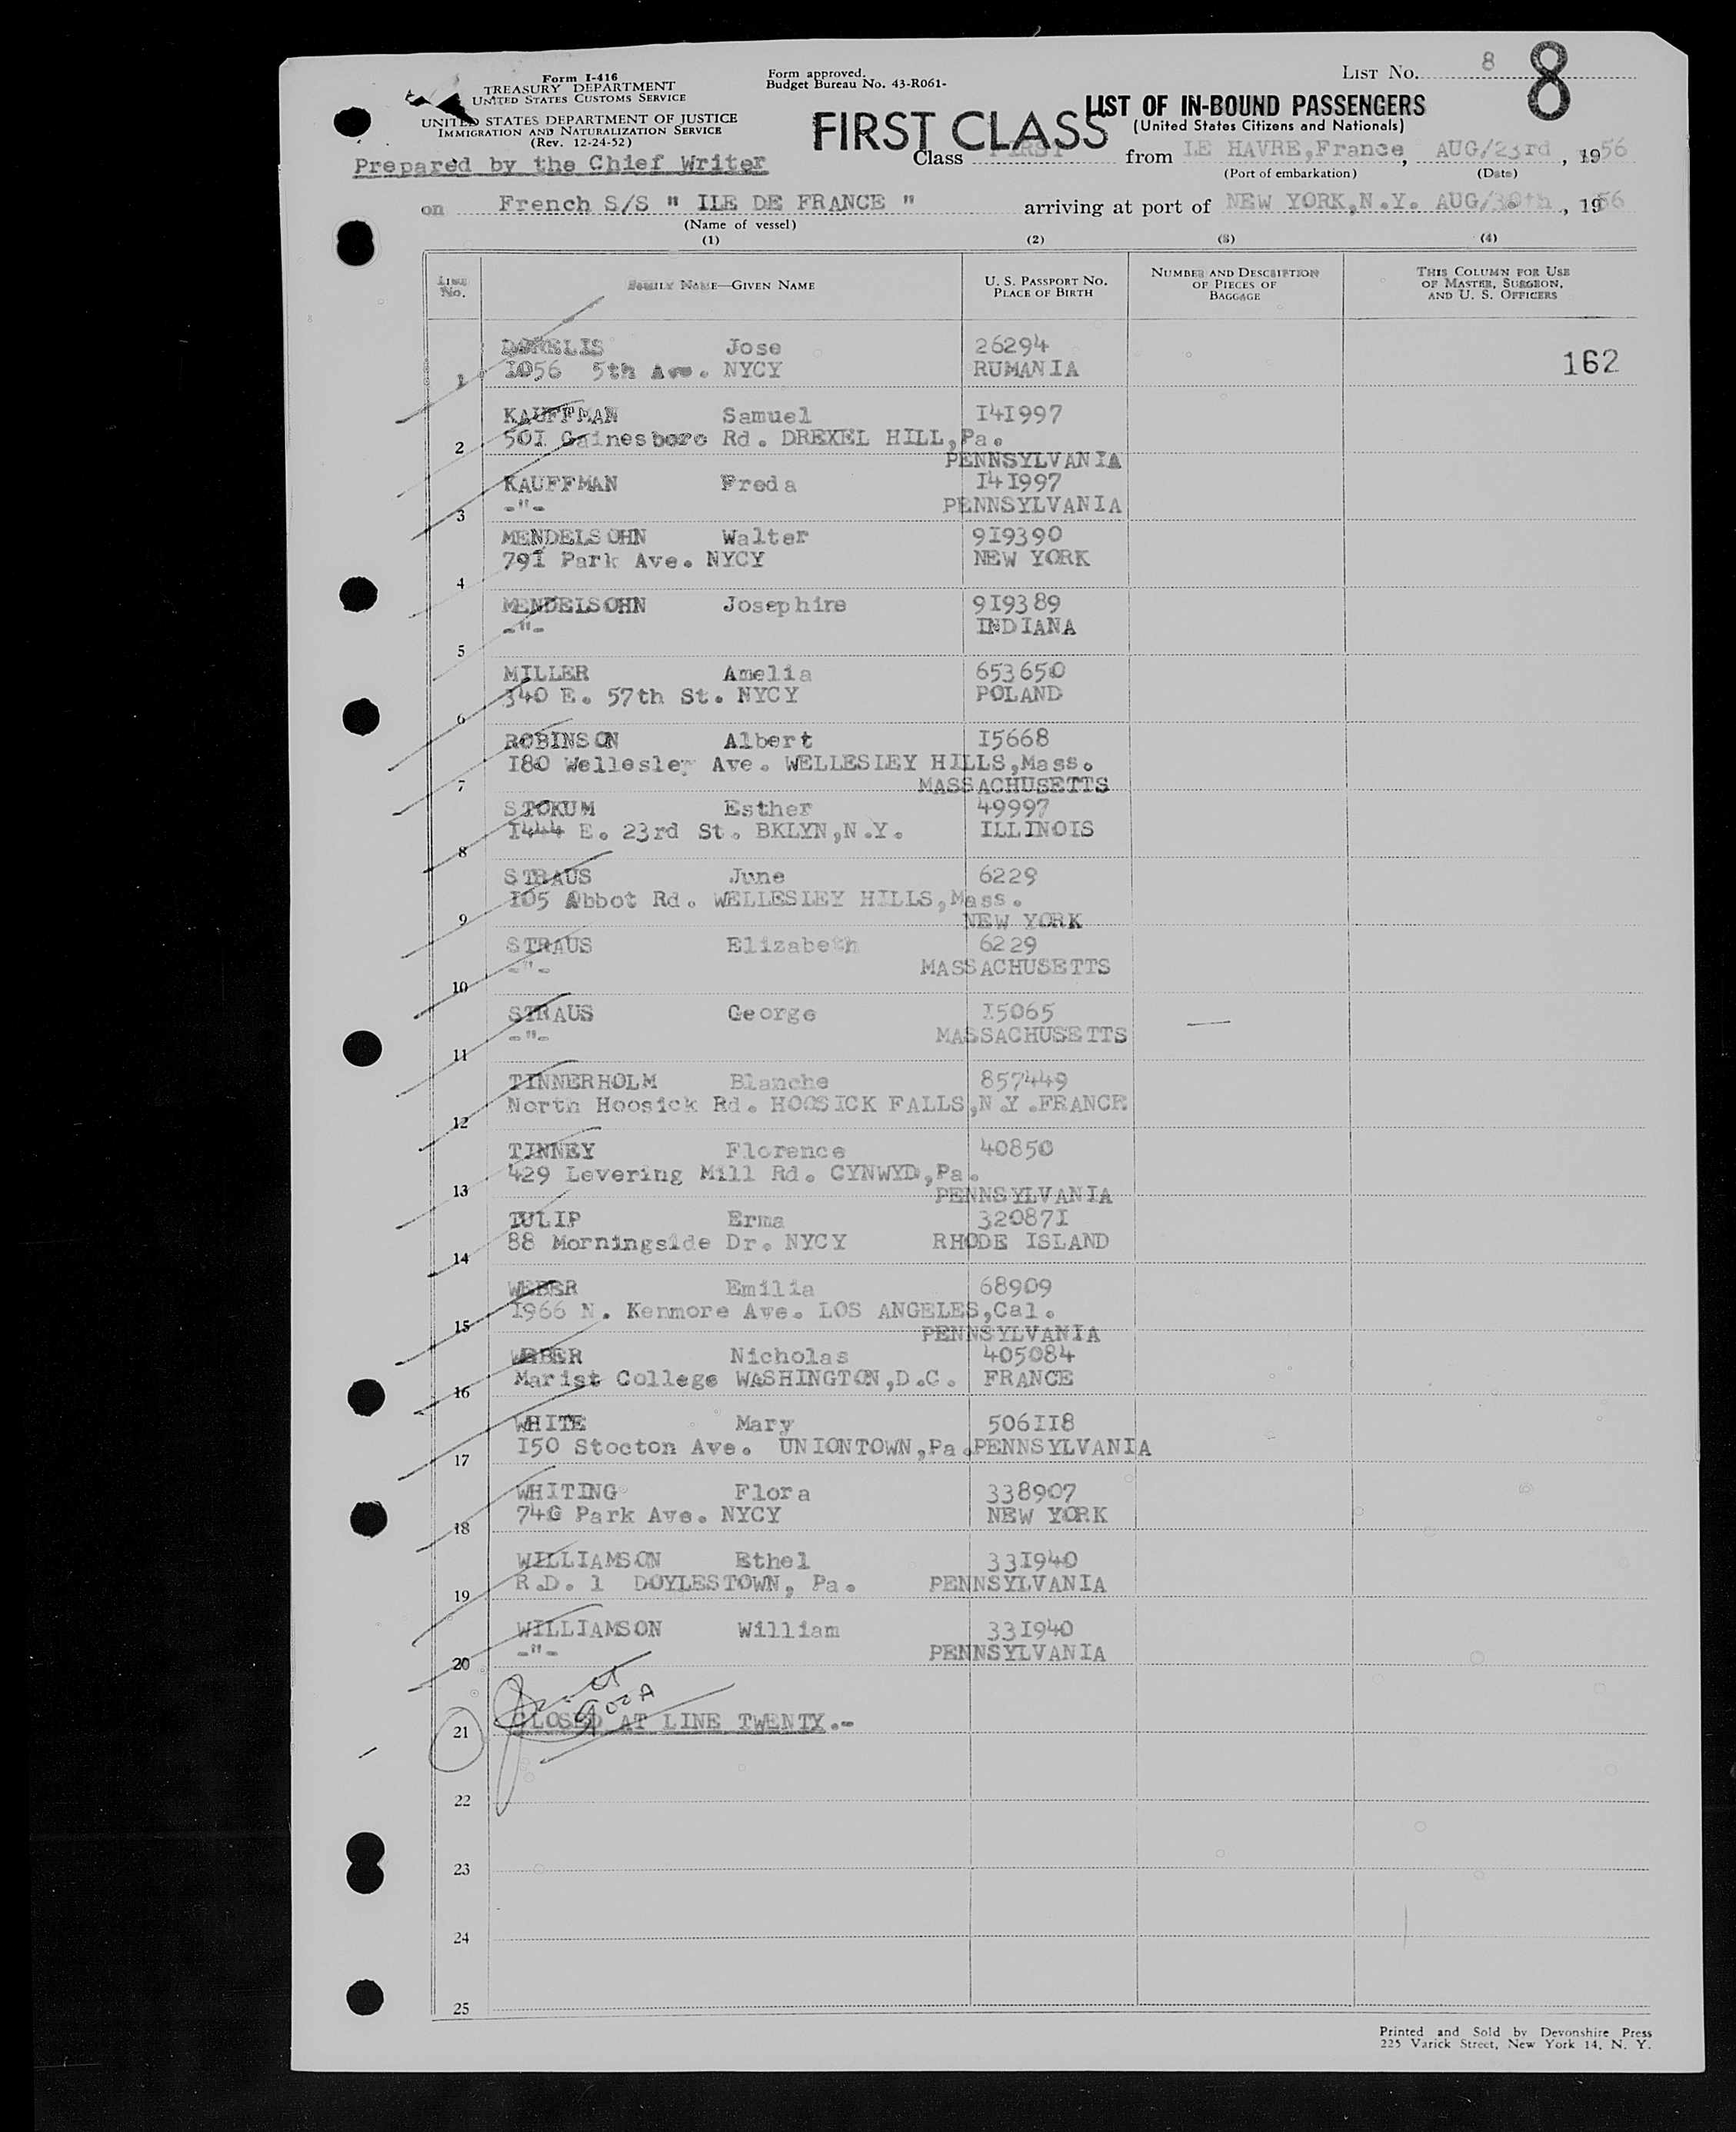 Form I-416
TREASURY DEPARTMENT
UNITED STATES CUSTOMS SERVICE
UNITED STATES DEPARTMENT OF JUSTICE
IMMIGRATION AND NATURALIZATION SERVICE
(Rev. 12-24-52)
Form approved.
Budget Bureau No. 43-R061-
LIST NO. 8
8
Prepared by the Chief Writer
FIRST CLASS
LIST OF IN-BOUND PASSENGERS
(United States Citizens and Nationals)
Class FIRST from LE HAVRE,France, AUG/23rd, 1956
(Port of embarkation) (Date)
on French S/S " ILE DE FRANCE " arriving at port of NEW YORK,N.Y. AUG/30th, 1956
(Name of vessel)
(1) (2) (3) (4)
LINE NO. FAMILY NAME—GIVEN NAME U. S. PASSPORT NO. PLACE OF BIRTH NUMBER AND DESCRIPTION OF PIECES OF BAGGAGE THIS COLUMN FOR USE OF MASTER, SURGEON, AND U. S. OFFICERS
Jose 26294
1 1056 5th Ave. NYCY RUMANIA 162
KAUFFMAN Samuel 141997
2 501 Gainesboro Rd. DREXEL HILL,Pa.
PENNSYLVANIA
KAUFFMAN Freda 141997
3 -"- PENNSYLVANIA
MENDELSOHN Walter 919390
791 Park Ave. NYCY NEW YORK
4
MENDELSOHN Josephire 919389
-"- INDIANA
5
MILLER Amelia 653650
340 E. 57th St. NYCY POLAND
6
ROBINSON Albert 15668
180 Wellesley Ave. WELLESLEY HILLS,Mass.
7 MASSACHUSETTS
STOKUM Esther 49997
1444 E. 23rd St. BKLYN,N.Y. ILLINOIS
8
STRAUS June 6229
105 Abbot Rd. WELLESLEY HILLS,Mass.
9 NEW YORK
STRAUS Elizabeth 6229
-"- MASSACHUSETTS
10
STRAUS George 15065
-"- MASSACHUSETTS
11
TINNERHOLM Blanche 857449
North Hoosick Rd. HOOSICK FALLS,N.Y.FRANCE
12
TINNEY Florence 40850
429 Levering Mill Rd. CYNWYD,Pa.
13 PENNSYLVANIA
TULIP Erma 320871
88 Morningside Dr. NYCY RHODE ISLAND
14
WEBER Emilia 68909
1966 N. Kenmore Ave. LOS ANGELES,Cal.
15 PENNSYLVANIA
WEBER Nicholas 405084
Marist College WASHINGTON,D.C. FRANCE
16
WHITE Mary 506118
150 Stocton Ave. UNIONTOWN,Pa.PENNSYLVANIA
17
WHITING Flora 338907
740 Park Ave. NYCY NEW YORK
18
WILLIAMSON Ethel 331940
R.D. 1 DOYLESTOWN, Pa. PENNSYLVANIA
19
WILLIAMSON William 331940
-"- PENNSYLVANIA
20
21 CLOSED AT LINE TWENTY.-
22
23
24
25
Printed and Sold by Devonshire Press
225 Varick Street, New York 14, N. Y.